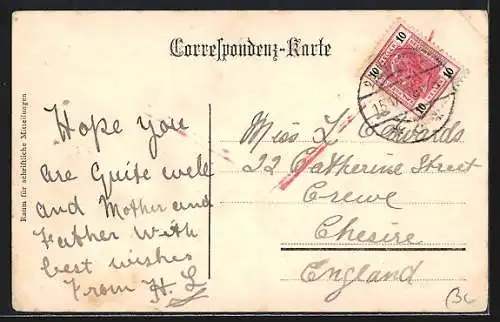 Correspondenz-Karte
Raum für schriftliche Mitteilungen
Hope you
are Quite well
and Mother and
Father With
best wishes
From H. L
Miss L Edwards
22 Catherine Street
Crewe
Chesire
England
10
10
10
10
15
BL